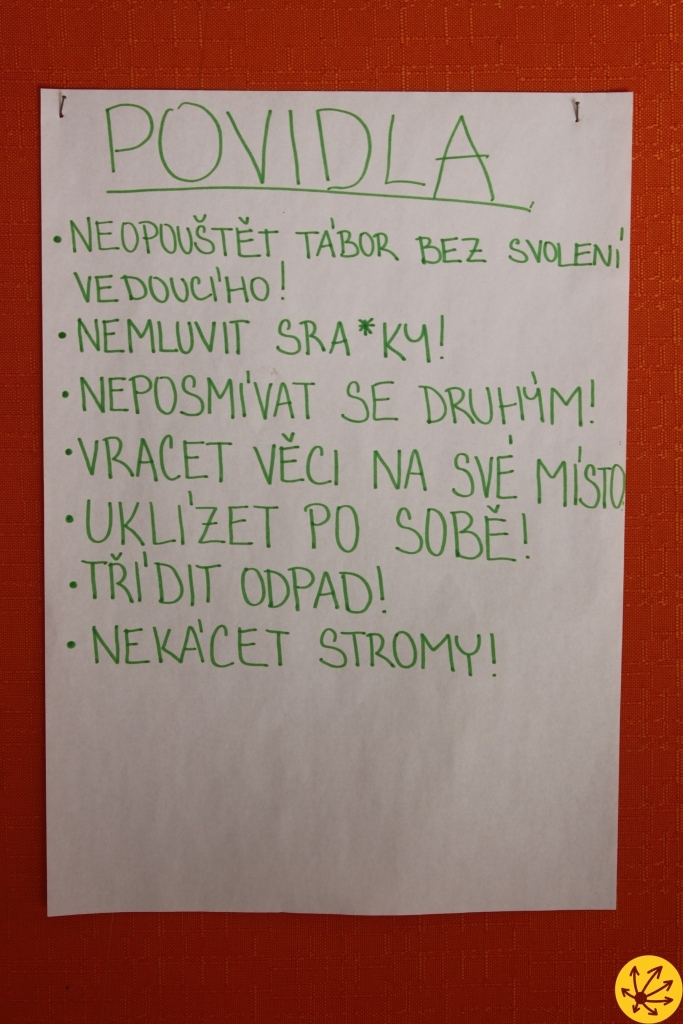 POVIDLA
• NEOPOUŠTĚT TÁBOR BEZ SVOLENÍ
VEDOUCÍHO!
• NEMLUVIT SRA*KY!
• NEPOSMÍVAT SE DRUHÝM!
• VRACET VĚCI NA SVÉ MÍSTO
• UKLÍZET PO SOBĚ!
• TŘÍDIT ODPAD!
• NEKÁCET STROMY!